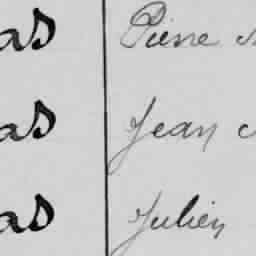 as Pierre
as Jean
as Julien